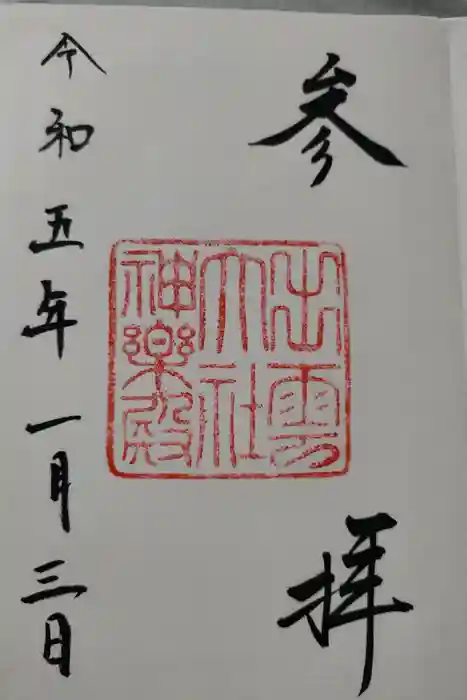 参拝
出雲
大社
神楽殿
令和五年一月三日